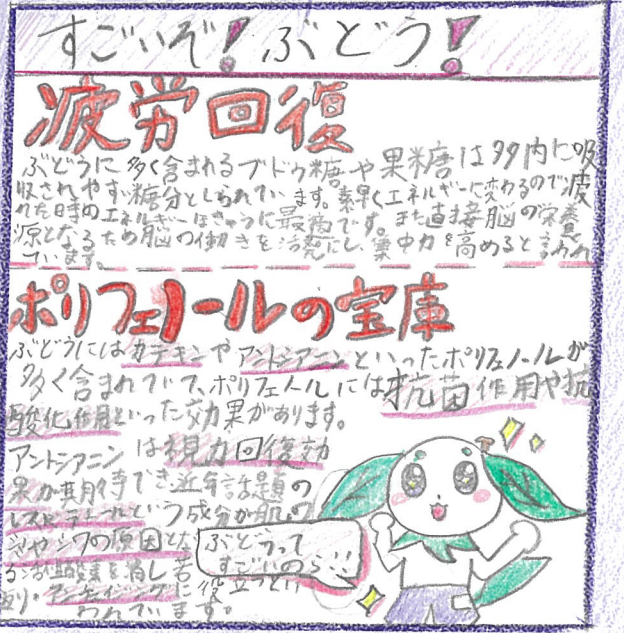 すごいぞ!ぶどう!
疲労回復
ぶどうに多く含まれるブドウ糖や果糖は体内に吸
収されやすい糖分としられています。素早くエネルギーに変わるので疲
れた時のエネルギーほきゅうに最適です。また直接脳の栄養
源となるため脳の働きを活発にし、集中力を高めると言われ
ています。
ポリフェノールの宝庫
ぶどうにはカテキンやアントシアニンといったポリフェノールが
多く含まれていて、ポリフェノールには抗菌作用や抗
酸化作用といった効果があります。
アントシアニンは視力回復効
果が期待でき近年話題の
レスベラトロールという成分が肌の
シワの原因とな
る活性酸素を消し若
返り・アンチエイジングに
役立つとい
われています。
ぶどうって
すごいのら...